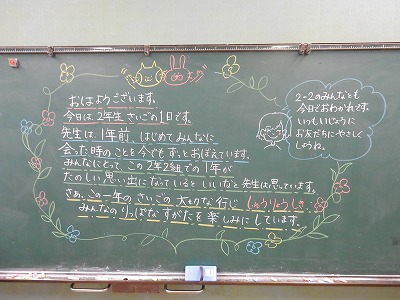 おはようございます。
今日は、2年生 さいごの1日です。
先生は、1年前、はじめて みんなに
会った時のことを今でも ずっと おぼえています。
みんなにとって、この 2年2組での 1年が
たのしい思い出に なっていると いいなと 先生は思っています。
さあ、この一年の さいごの 大切な行じ しゅうりょうしき。
みんなの りっぱな すがたを 楽しみに しています。
2-2のみんなとも
今日でおわかれです。
いつもいじょうに
お友だちにやさしく
しようね。